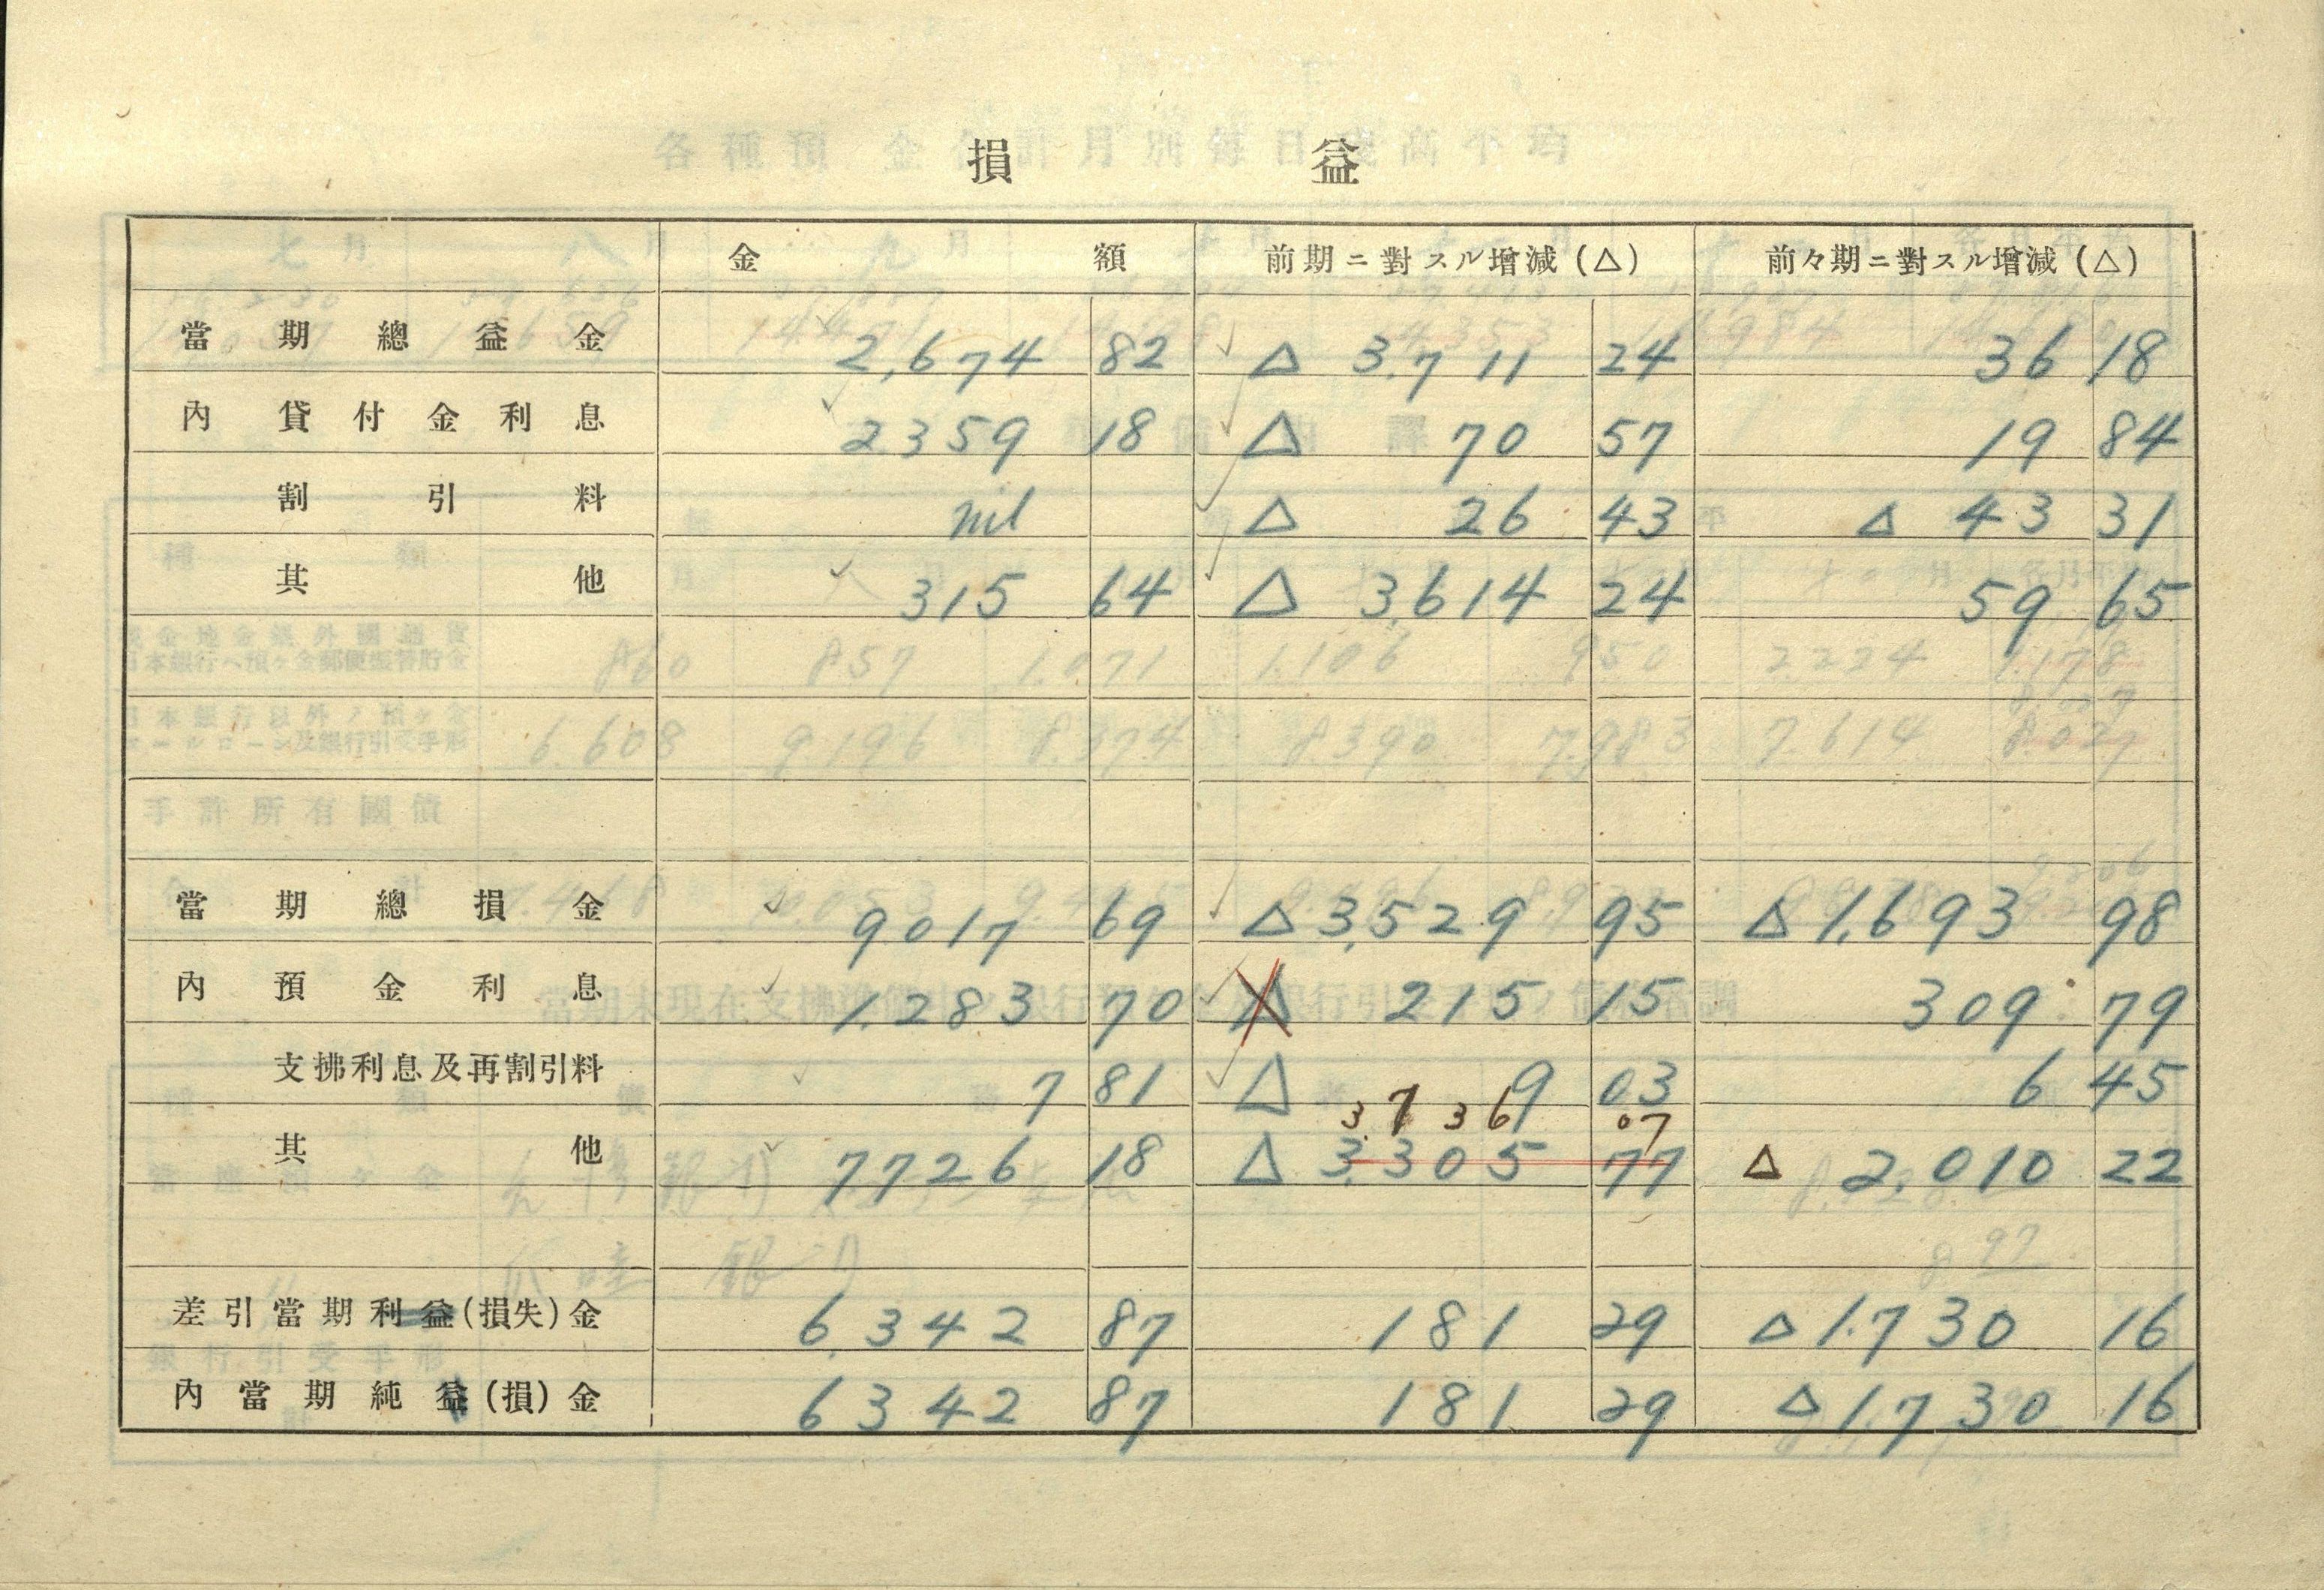 損 益
金 額 前期ニ對スル增減(△) 前々期ニ對スル增減(△)
當期總益金 2,674 82 △ 3.711 24 36 18
內 貸付金利息 2359 18 △ 70 57 19 84
割引料 nil △ 26 43 △ 43 31
其他 315 64 △ 3,614 24 59 65
當期總損金 9017 69 △ 3,529 95 △ 1,693 98
內 預金利息 1.283 70 △ 215 15 309 79
支拂利息及再割引料 7 81 △ 9 03 6 45
3.736 07
其他 7726 18 △ 3,305 77 △ 2,010 22
差引當期利益(損失)金 6,342 87 181 29 △ 1.730 16
內當期純益(損)金 6342 87 181 29 △ 1.730 16